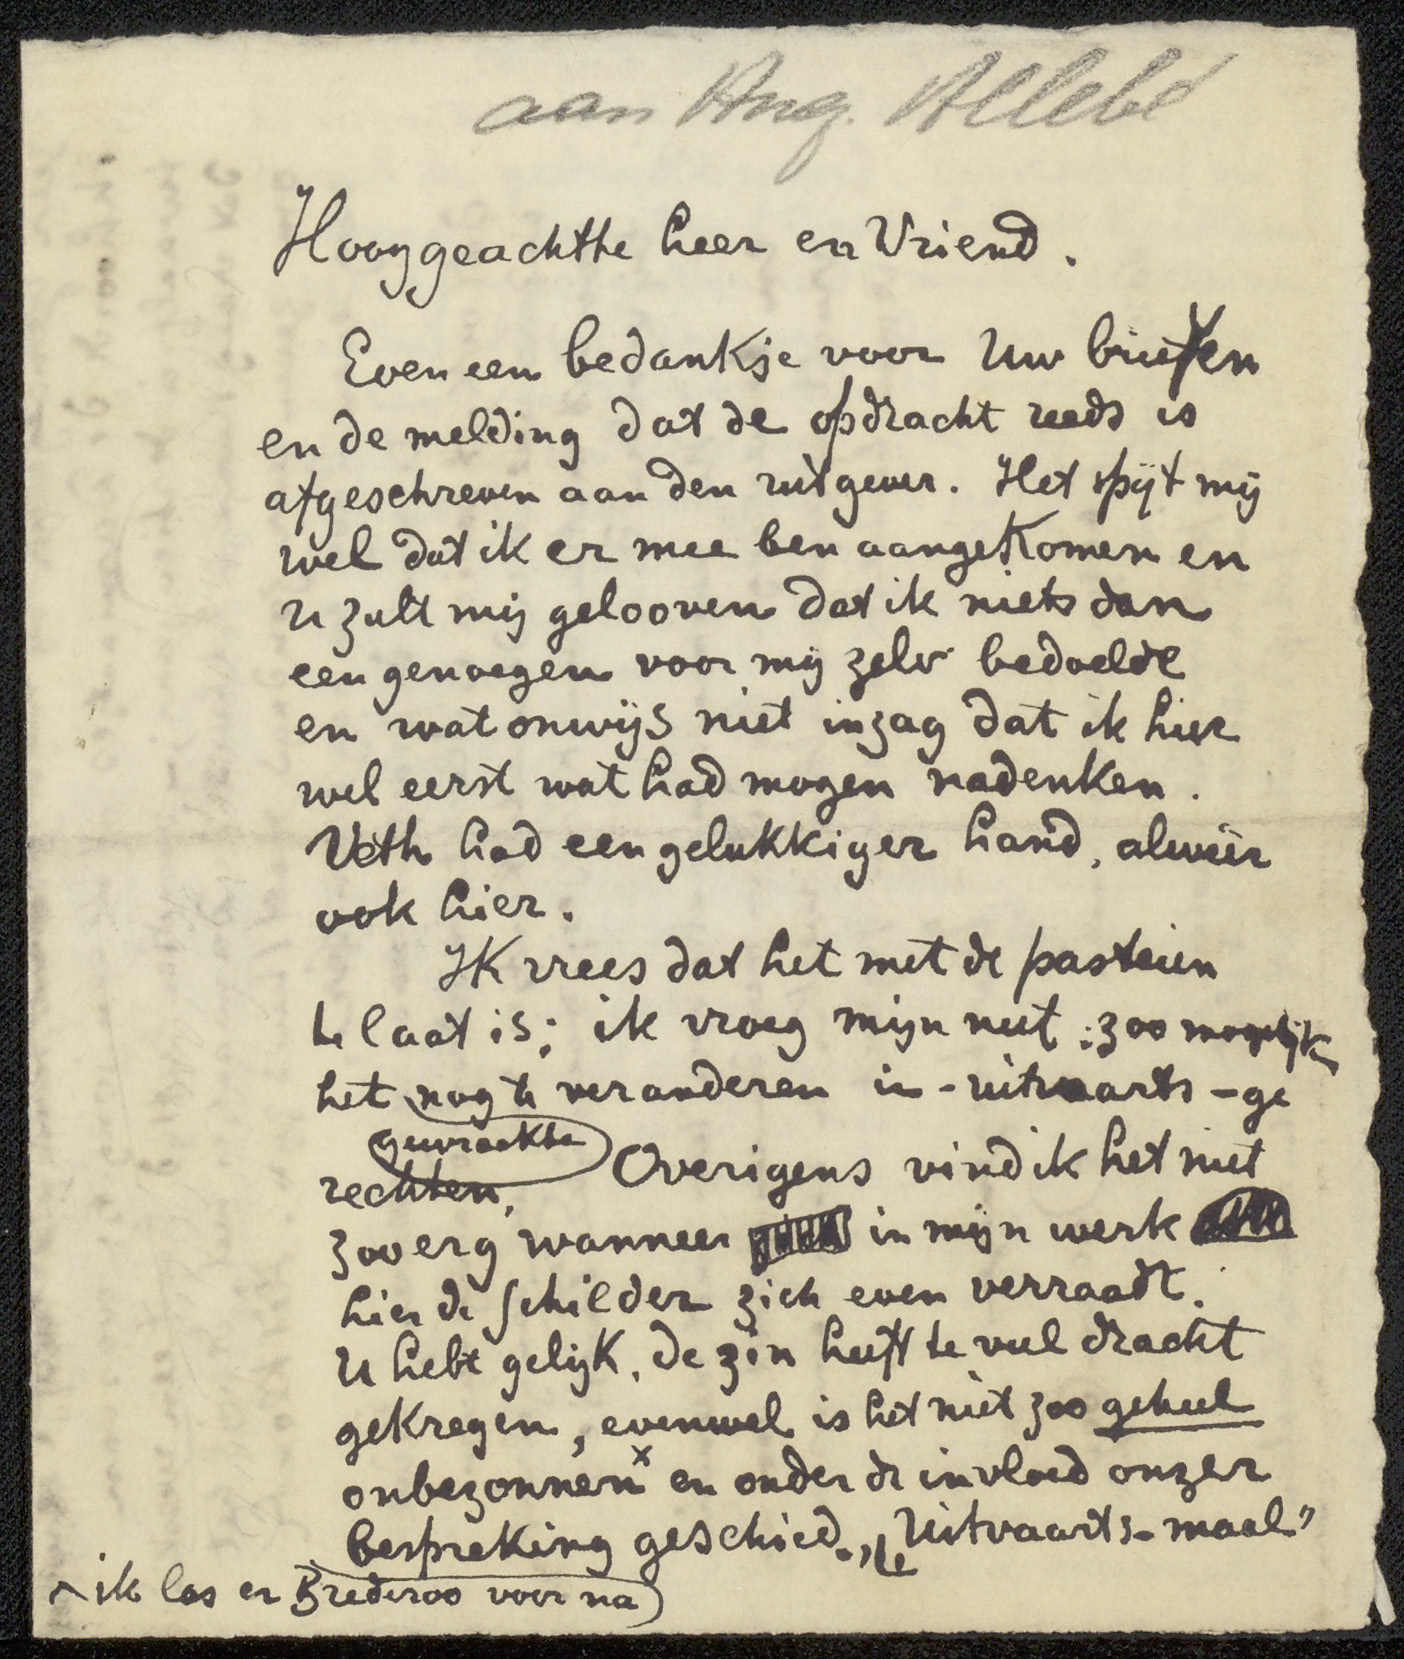 aan Aug. Allebé
Hooggeachtte heer en Vriend.
Even een bedankje voor Uw brieven
en de melding dat de opdracht reeds is
afgeschreven aan den uitgever. Het spijt mij
wel dat ik er mee ben aangekomen en
U zult mij gelooven dat ik niets dan
een genoegen voor mij zelv bedoelde
en wat onwijs niet inzag dat ik hier
wel eerst wat had mogen nadenken.
Veth had een gelukkiger hand, alweêr
ook hier.
Ik vrees dat het met de pasteien
te laat is; ik vroeg mijn neef: zoo mogelijk
het nog te veranderen in - uitvaarts - ge
gewraakte
rechten, Overigens vind ik het niet
zoo erg wanneer in mijn werk
hier de schilder zich even verraadt.
U hebt gelijk, de zin heeft te veel dracht
gekregen, evenwel is het niet zoo geheel
onbezonnen x en onder de invloed onzer
bespreking geschied. „Uitvaarts-maal”
x ik las er Brederoo voor na